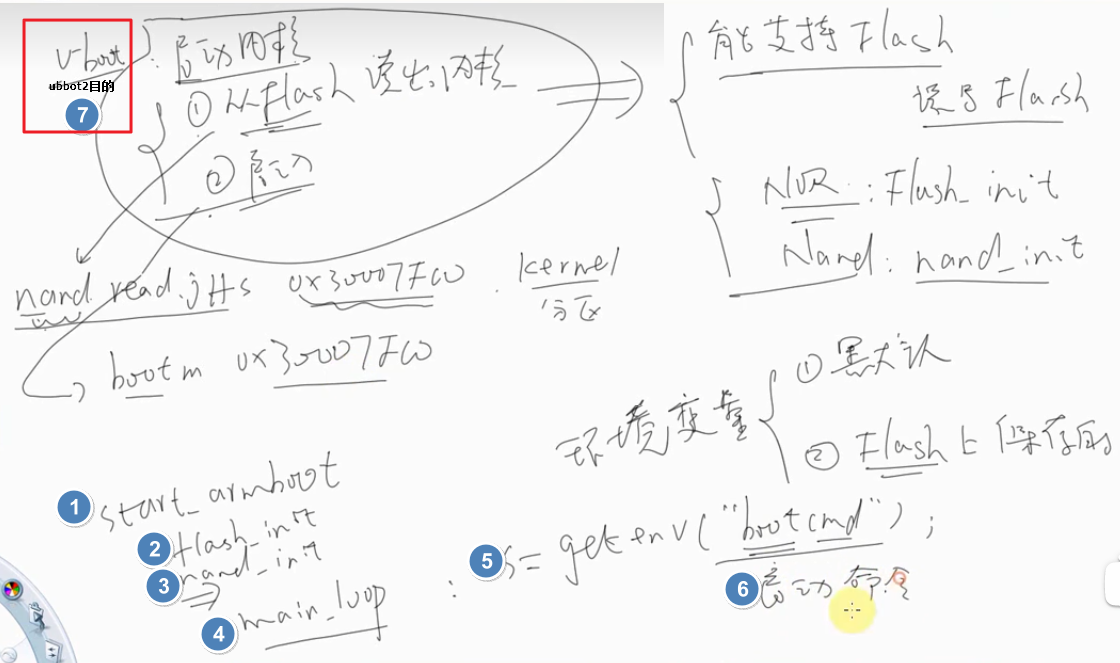 uboot : 启动内核
uбbot2目的
7
① 从Flash 读出内核
② 启动
能支持Flash
读写Flash
NOR : Flash_init
Nand : nand_init
nand read.jffs 0x30007FC0 . kernel
分区
bootm 0x30007FC0
环境变量
① 默认
② Flash上保存的
1 start_armboot
2 flash_init
3 nand_init
4 main_loop :
5 s = getenv("bootcmd");
6 启动命令